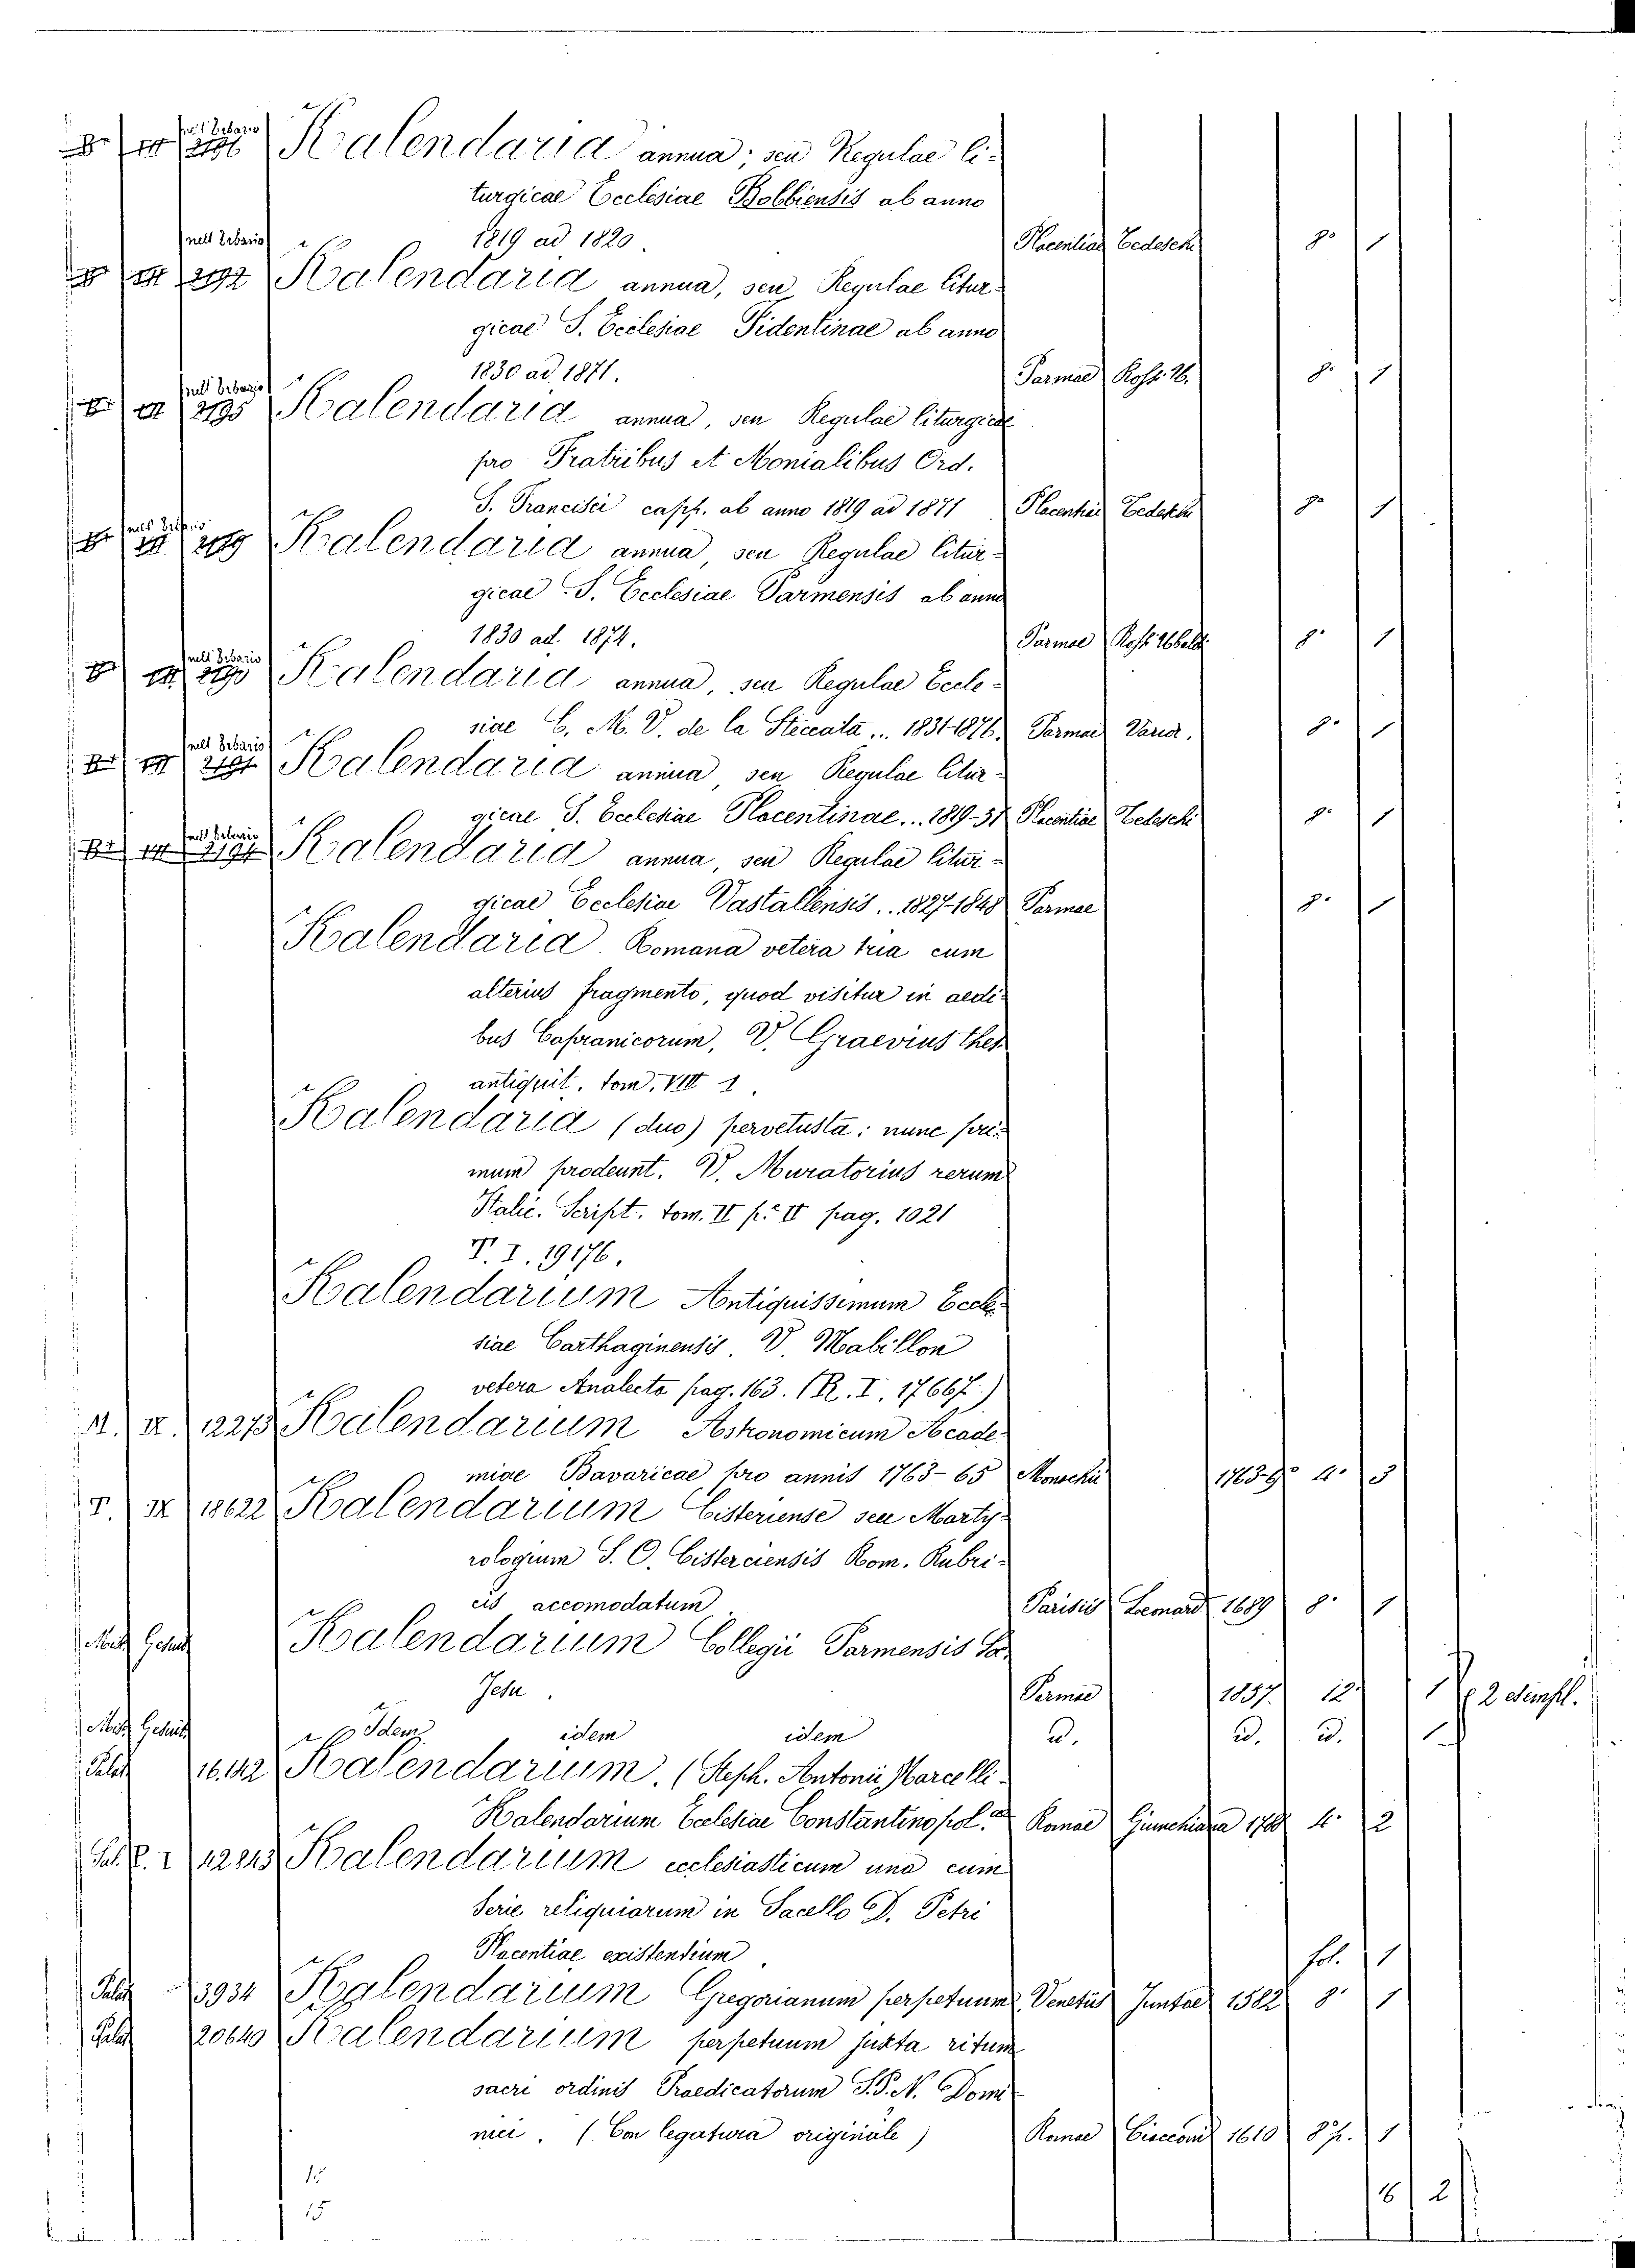 Kalendaria annua; seu Regulae li-
turgicae Ecclesiae Bobbiensis ab anno
nell'Erbario 1819 ad 1820. Placentiae Tedeschi 8° 1
2192 Kalendaria annua, seu Regulae litur-
gicae S. Ecclesiae Fidentinae ab anno
1830 ad 1871. Parmae Ross. U. 8° 1
2195 Kalendaria annua, seu Regulae liturgicae
pro Fratribus et Monialibus Ord.
S. Francisci capp. ab anno 1819 ad 1871 Placentiae Tedeschi 8° 1
Kalendaria annua, seu Regulae litur-
gicae S. Ecclesiae Parmensis ab anno
1830 ad 1874. Parmae Ross. Ubald. 8° 1
Kalendaria annua, seu Regulae Eccle-
siae B. M. V. de la Steccata... 1831-1876. Parmae Varia. 8° 1
Kalendaria annua, seu Regulae litur-
gicae S. Ecclesiae Placentinae... 1819-31 Placentiae Tedeschi 8° 1
Kalendaria annua, seu Regulae litur-
gicae Ecclesiae Vastallensis.. 1827-1848 Parmae 8° 1
Kalendaria Romana vetera tria cum
alterius fragmento, quod visitur in aedi-
bus Capranicorum, V. Graevius thes
antiquit. tom. VIII 1.
Kalendaria (duo) pervetusta: nunc pri-
mum prodeunt. V. Muratorius rerum
Italic. Script. tom. II p.e II pag. 1021
T. I. 19176.
Kalendarium Antiquissimum Eccle-
siae Carthaginensis. V. Mabillon
vetera Analecta pag. 163. (R. I. 17667.)
12273 Kalendarium Astronomicum Acade-
miae Bavaricae pro annis 1763-65 Monachii 4° 3
T. IX 18622 Kalendarium Cisteriense seu Marty-
rologium S. O. Cisterciensis Rom. Rubri-
cis accomodatum Parisiis Leonard 1689 8° 1
Kalendarium Collegii Parmensis So.
Jesu. Parmae 1837. 12° 1
Idem idem idem id. id. id. 1
Palat 16.142 Kalendarium. (Steph. Antonii Marcelli-
Kalendarium Ecclesiae Constantinopol. Romae 1788 4° 2
12843 Kalendarium ecclesiasticum una cum
Serie reliquiarum in Sacello D. Petri
Placentiae existentium fol. 1
Palat 3934 Kalendarium Gregorianum perpetuum. Venetiis Juntae 1582 8° 1
Palat 20640 Kalendarium perpetuum juxta ritum
sacri ordinis Praedicatorum S.P.N. Domi-
nici. (Con legatura originale) Romae 1610 8° p. 1
15
15